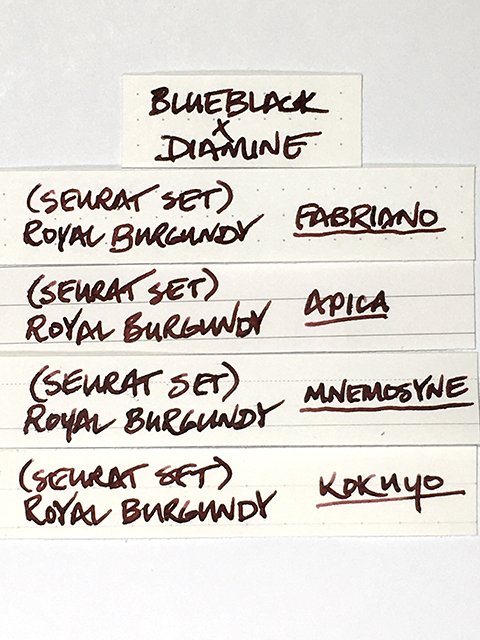 BLUEBLACK
x
DIAMINE
(SEURAT SET)
ROYAL BURGUNDY FABRIANO
(SEURAT SET)
ROYAL BURGUNDY APICA
(SEURAT SET)
ROYAL BURGUNDY MNEMOSYNE
(SEURAT SET)
ROYAL BURGUNDY KOKUYO